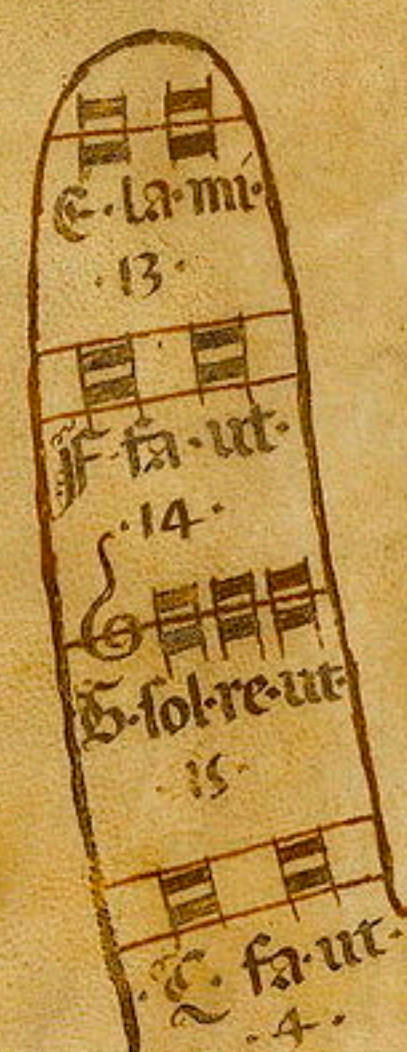 E · la · mi ·
· 13 ·
F · fa · ut ·
· 14 ·
G · sol · re · ut ·
· 15 ·
· C · fa · ut ·
· 4 ·